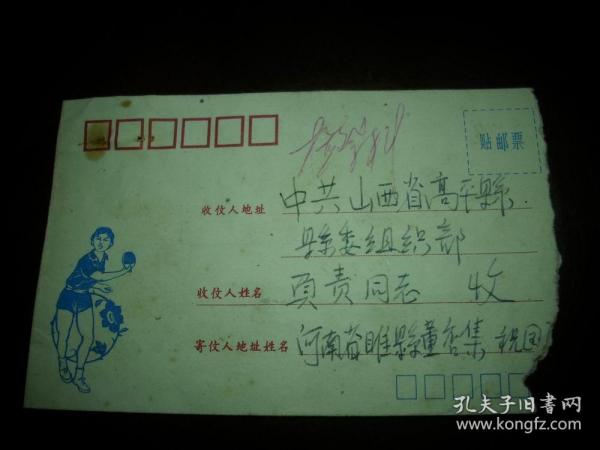 贴邮票
收伩人地址 中共山西省高平縣
縣委组织部
收伩人姓名 负责同志 收
寄伩人地址姓名 河南省睢縣董店集 祝国
孔夫子旧书网
www.kongfz.com